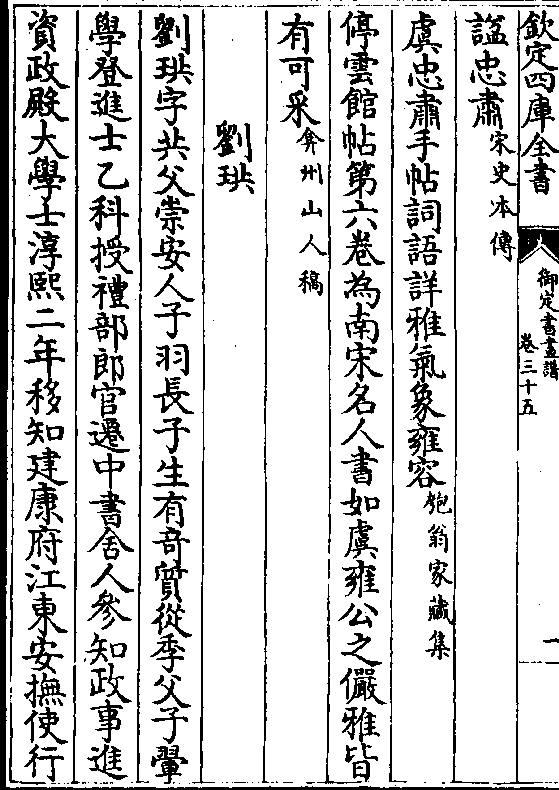 欽定四庫全書
御定書畫譜
卷三十五
一
謚忠肅宋史本傳
虞忠肅手帖詞語詳雅氣象雍容匏翁家藏集
停雲館帖第六卷為南宋名人書如虞雍公之儼雅皆
有可采弇州山人稿
劉珙
劉珙字共父崇安人子羽長子生有奇質從季父子翬
學登進士乙科授禮部郎官遷中書舍人參知政事進
資政殿大學士淳熙二年移知建康府江東安撫使行